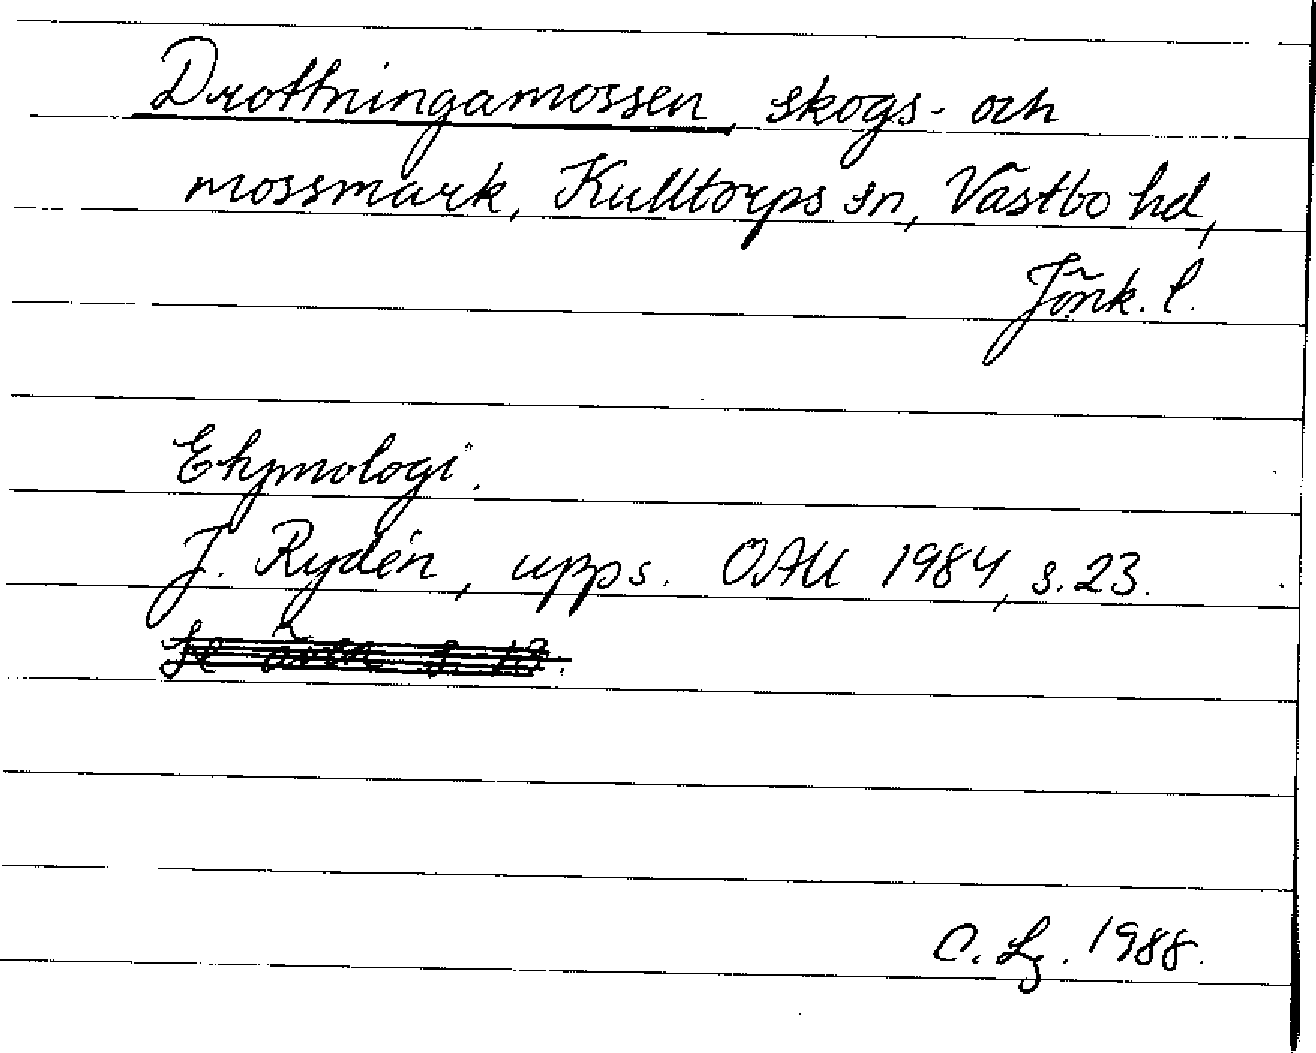 Drottningamossen, skogs- och
mossmark, Kulltorps sn, Västbo hd,
Jönk. l.
Etymologi.
J. Rydén, upps. OAU 1984, s. 23.
Se även s. 13.
C. Lg. 1988.